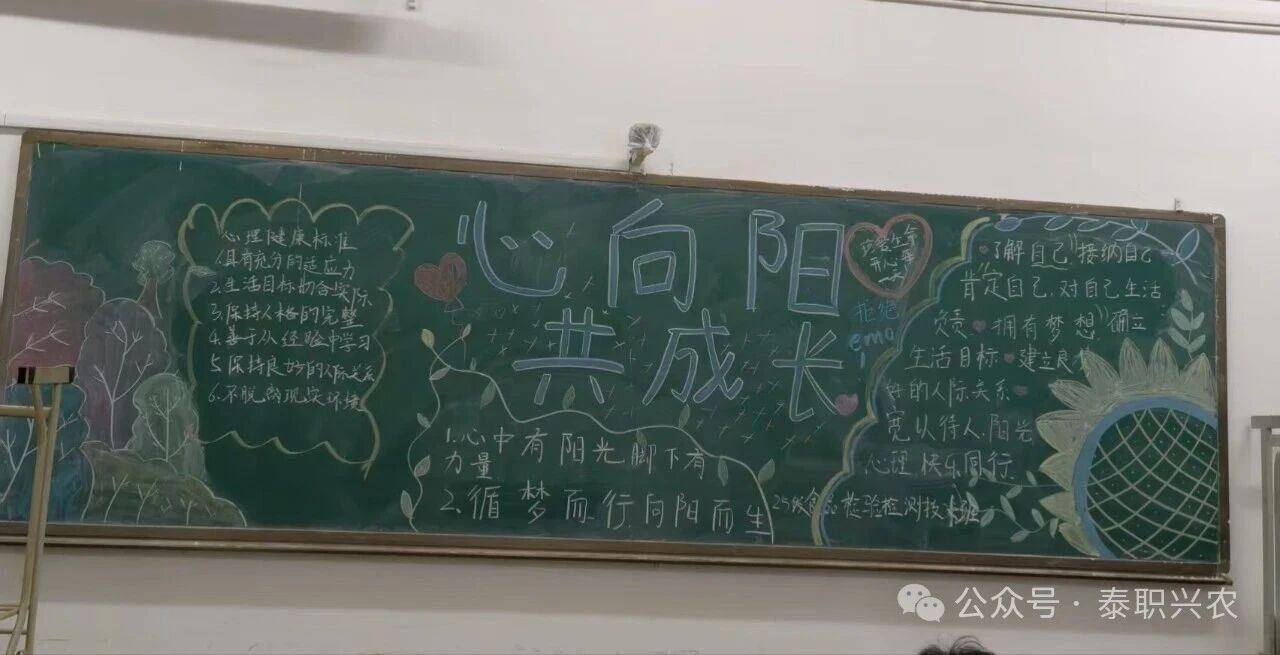 心理健康标准
1.具有充分的适应力
2.生活目标切合实际
3.保持人格的完整
4.善于从经验中学习
5.保持良好的人际关系
6.不脱离现实环境
心向阳
共成长
1.心中有阳光脚下有
力量
2.循梦而行,向阳而生
开心每
一天
拒绝
emo
了解自己 接纳自己
肯定自己,对自己生活
负责 拥有梦想 确立
生活目标 建立良
好的人际关系
宽以待人,阳光
心理 快乐同行
25级食品检验检测技术班
公众号 · 泰职兴农